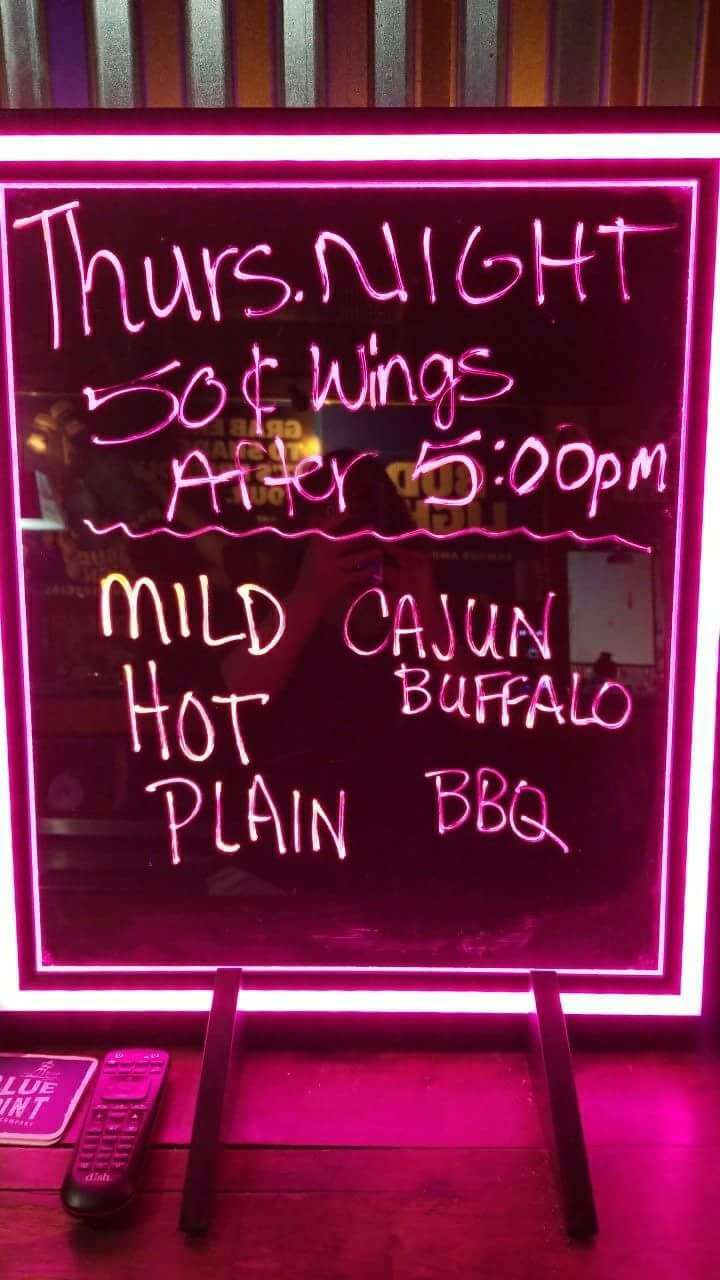 Thurs. NIGHT
50¢ Wings
After 5:00pm
MILD CAJUN
HOT BUFFALO
PLAIN BBQ
dish